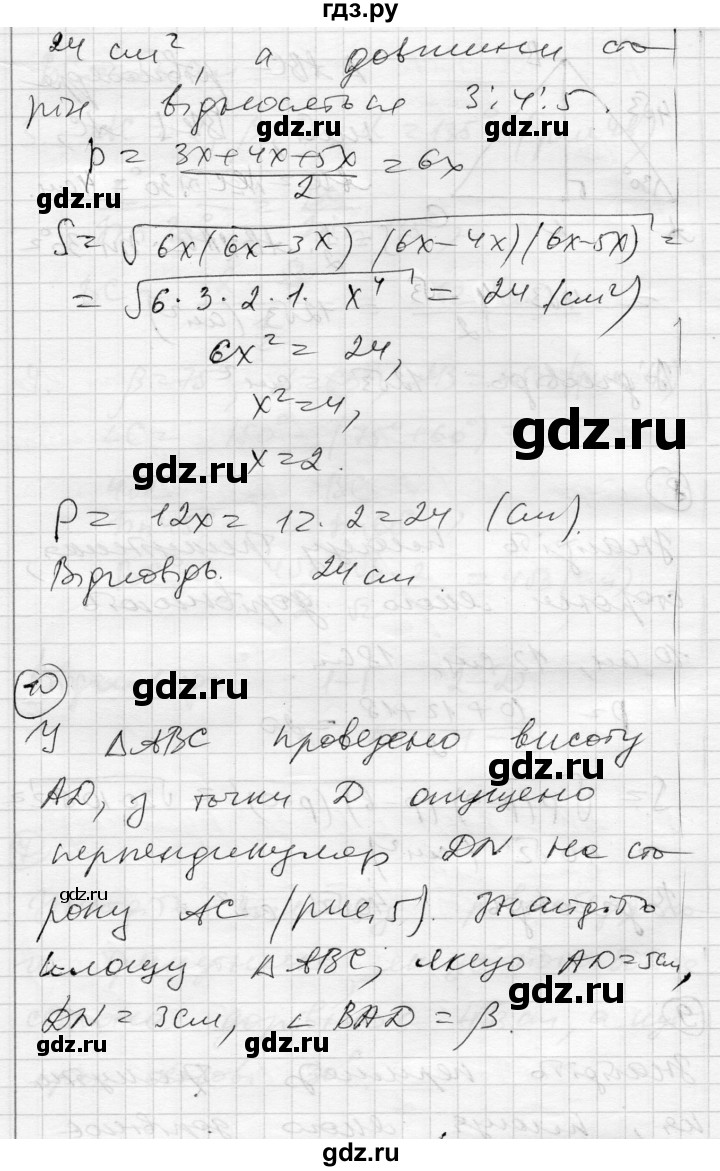 гдз.ру
24 см², а довжини сто
рін відносяться 3:4:5.
gdz.ru gdz.ru
p = (3x+4x+5x)/2 = 6x
gdz.ru gdz.ru
S = √(6x(6x-3x)(6x-4x)(6x-5x)) =
= √(6·3·2·1·x⁴) = 24 (см²)
6x² = 24,
x² = 4,
gdz.ru
gdz.ru
x = 2.
P = 12x = 12·2 = 24 (см).
Відповідь. 24 см
gdz.ru
10
У △ABC проведено висоту
gdz.ru
AD, з точки D опущено
перпендикуляр DN на сто
gdz.ru
рону AC (рис. 5). Знайдіть
площу △ABC, якщо AD = 5см,
gdz.ru
DN = 3см, ∠BAD = β.
gdz.ru
gdz.ru